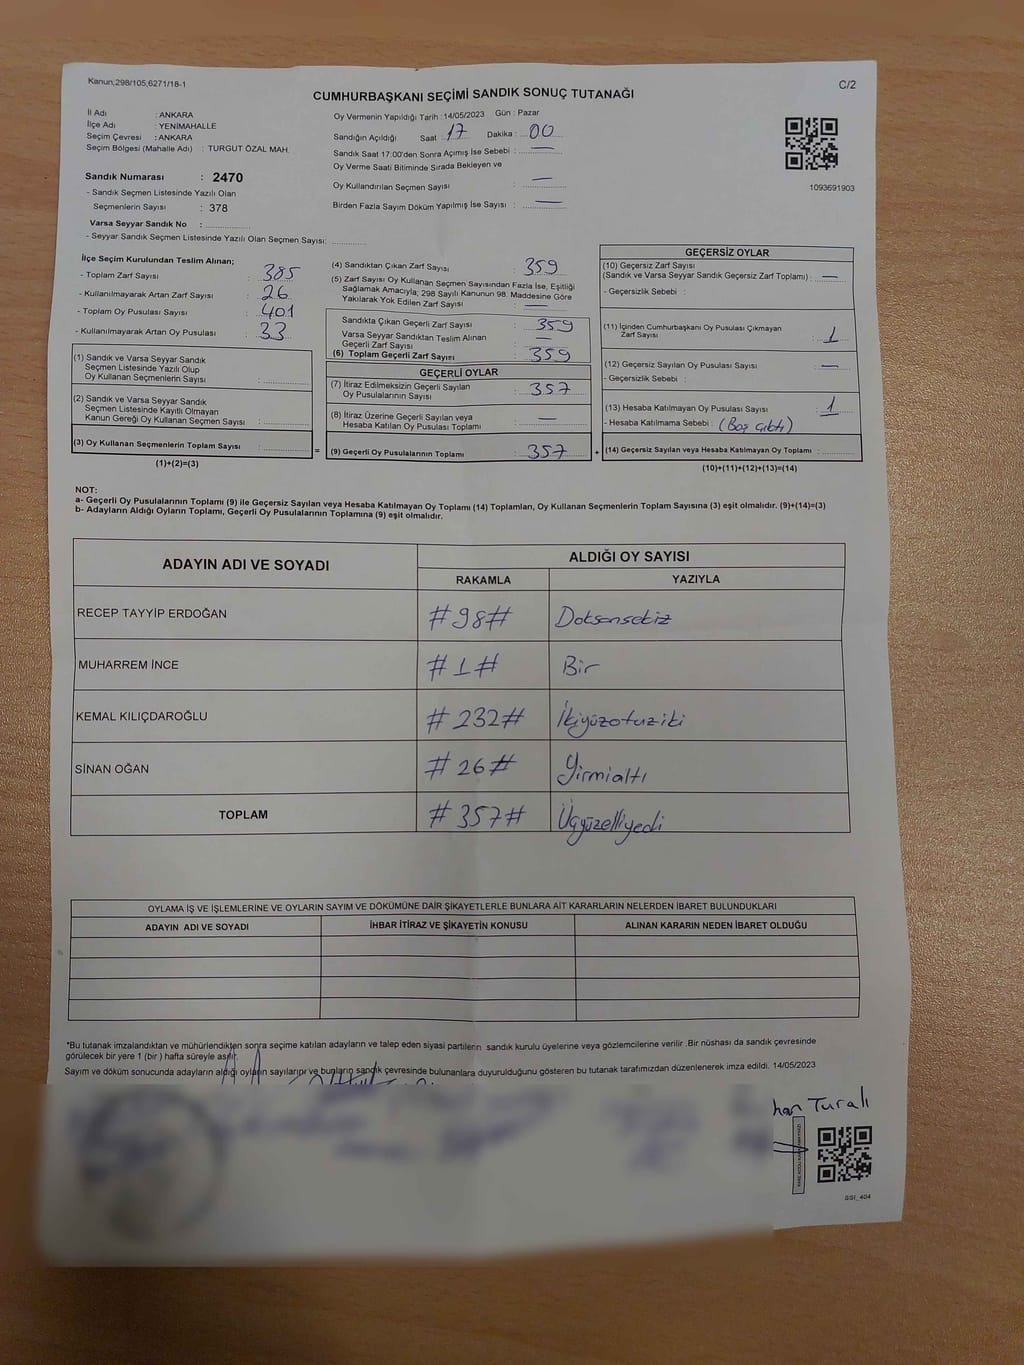 Kanun,298/105,6271/18-1
C/2
CUMHURBAŞKANI SEÇİMİ SANDIK SONUÇ TUTANAĞI
İl Adı : ANKARA
İlçe Adı : YENİMAHALLE
Seçim Çevresi : ANKARA
Seçim Bölgesi (Mahalle Adı) : TURGUT ÖZAL MAH.
Sandık Numarası : 2470
- Sandık Seçmen Listesinde Yazılı Olan
Seçmenlerin Sayısı : 378
Varsa Seyyar Sandık No :
- Seyyar Sandık Seçmen Listesinde Yazılı Olan Seçmen Sayısı:
Oy Vermenin Yapıldığı Tarih : 14/05/2023 Gün : Pazar
Sandığın Açıldığı Saat : 17 Dakika : 00
Sandık Saat 17:00'den Sonra Açımış İse Sebebi : —
Oy Verme Saati Bitiminde Sırada Bekleyen ve
Oy Kullandırılan Seçmen Sayısı : —
Birden Fazla Sayım Döküm Yapılmış İse Sayısı : —
1093691903
İlçe Seçim Kurulundan Teslim Alınan;
- Toplam Zarf Sayısı : 385
- Kullanılmayarak Artan Zarf Sayısı : 26
- Toplam Oy Pusulası Sayısı : 401
- Kullanılmayarak Artan Oy Pusulası : 33
(1) Sandık ve Varsa Seyyar Sandık
Seçmen Listesinde Yazılı Olup
Oy Kullanan Seçmenlerin Sayısı :
(2) Sandık ve Varsa Seyyar Sandık
Seçmen Listesinde Kayıtlı Olmayan
Kanun Gereği Oy Kullanan Seçmen Sayısı :
(3) Oy Kullanan Seçmenlerin Toplam Sayısı :
(1)+(2)=(3)
(4) Sandıktan Çıkan Zarf Sayısı : 359
(5) Zarf Sayısı Oy Kullanan Seçmen Sayısından Fazla İse, Eşitliği
Sağlamak Amacıyla; 298 Sayılı Kanunun 98. Maddesine Göre
Yakılarak Yok Edilen Zarf Sayısı : —
Sandıkta Çıkan Geçerli Zarf Sayısı : 359
Varsa Seyyar Sandıktan Teslim Alınan
Geçerli Zarf Sayısı : —
(6) Toplam Geçerli Zarf Sayısı : 359
GEÇERLİ OYLAR
(7) İtiraz Edilmeksizin Geçerli Sayılan
Oy Pusulalarının Sayısı : 357
(8) İtiraz Üzerine Geçerli Sayılan veya
Hesaba Katılan Oy Pusulası Toplamı : —
= (9) Geçerli Oy Pusulalarının Toplamı : 357 +
GEÇERSİZ OYLAR
(10) Geçersiz Zarf Sayısı
(Sandık ve Varsa Seyyar Sandık Geçersiz Zarf Toplamı) : —
- Geçersizlik Sebebi :
(11) İçinden Cumhurbaşkanı Oy Pusulası Çıkmayan
Zarf Sayısı : 1
(12) Geçersiz Sayılan Oy Pusulası Sayısı : —
- Geçersizlik Sebebi :
(13) Hesaba Katılmayan Oy Pusulası Sayısı : 1
- Hesaba Katılmama Sebebi : (Boş çıktı)
(14) Geçersiz Sayılan veya Hesaba Katılmayan Oy Toplamı :
(10)+(11)+(12)+(13)=(14)
NOT:
a- Geçerli Oy Pusulalarının Toplamı (9) ile Geçersiz Sayılan veya Hesaba Katılmayan Oy Toplamı (14) Toplamları, Oy Kullanan Seçmenlerin Toplam Sayısına (3) eşit olmalıdır. (9)+(14)=(3)
b- Adayların Aldığı Oyların Toplamı, Geçerli Oy Pusulalarının Toplamına (9) eşit olmalıdır.
ADAYIN ADI VE SOYADI ALDIĞI OY SAYISI
RAKAMLA YAZIYLA
RECEP TAYYİP ERDOĞAN #98# Doksansekiz
MUHARREM İNCE #1# Bir
KEMAL KILIÇDAROĞLU #232# İkiyüzotuziki
SİNAN OĞAN #26# Yirmialtı
TOPLAM #357# Üçyüzelliyedi
OYLAMA İŞ VE İŞLEMLERİNE VE OYLARIN SAYIM VE DÖKÜMÜNE DAİR ŞİKAYETLERLE BUNLARA AİT KARARLARIN NELERDEN İBARET BULUNDUKLARI
ADAYIN ADI VE SOYADI İHBAR İTİRAZ VE ŞİKAYETİN KONUSU ALINAN KARARIN NEDEN İBARET OLDUĞU
*Bu tutanak imzalandıktan ve mühürlendikten sonra seçime katılan adayların ve talep eden siyasi partilerin sandık kurulu üyelerine veya gözlemcilerine verilir .Bir nüshası da sandık çevresinde
görülecek bir yere 1 (bir ) hafta süreyle asılır.
Sayım ve döküm sonucunda adayların aldığı oyların sayılarıpı ve bunların sandık çevresinde bulunanlara duyurulduğunu gösteren bu tutanak tarafımızdan düzenlenerek imza edildi. 14/05/2023
han Turalı
SSI_404